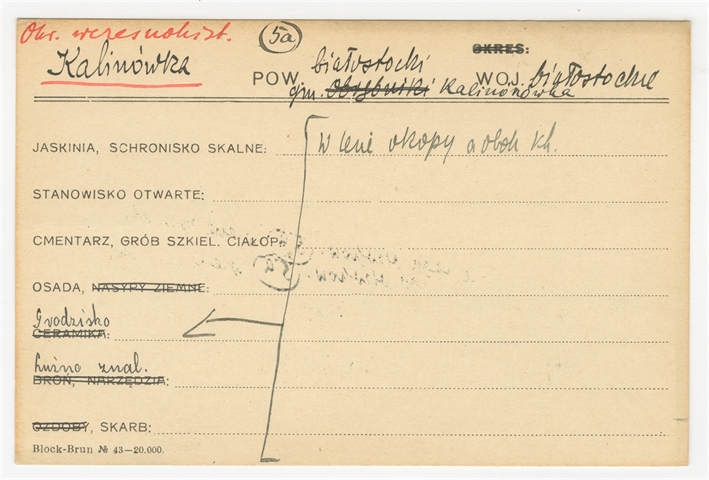 Okr. wczesnohist. (5a) OKRES:
Kalinówka POW. białostocki WOJ. białostockie
gm. Kalinówka
JASKINIA, SCHRONISKO SKALNE: W lesie okopy a obok kh.
STANOWISKO OTWARTE:
CMENTARZ, GRÓB SZKIEL. CIAŁOP.:
OSADA, NASYPY ZIEMNE:
Grodzisko
CERAMIKA:
Luźne znal.
BROŃ, NARZĘDZIA:
OZDOBY, SKARB:
Block-Brun № 43—20.000.